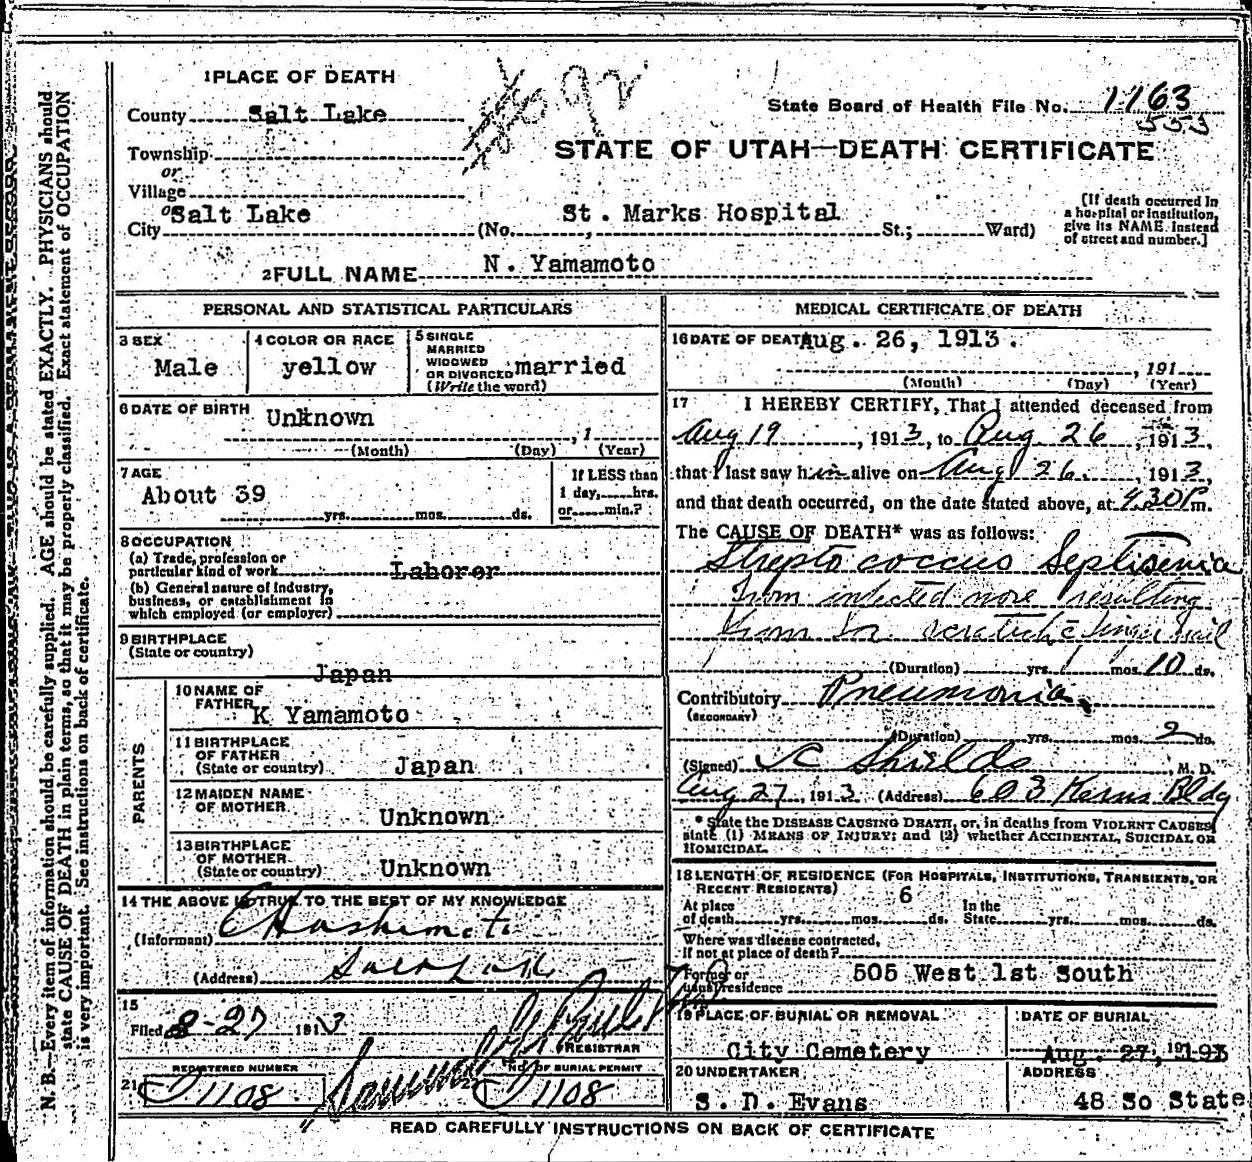 1 PLACE OF DEATH
County Salt Lake
Township
or
Village
or
City Salt Lake (No. St. Marks Hospital St.; Ward)
92
State Board of Health File No. 1163
553
STATE OF UTAH—DEATH CERTIFICATE
[If death occurred in
a hospital or institution,
give its NAME instead
of street and number.]
2 FULL NAME N. Yamamoto
PERSONAL AND STATISTICAL PARTICULARS
3 SEX
Male
4 COLOR OR RACE
yellow
5 SINGLE
MARRIED
WIDOWED
OR DIVORCED married
(Write the word)
6 DATE OF BIRTH Unknown
, 1
(Month) (Day) (Year)
7 AGE
About 39
yrs. mos. ds.
If LESS than
1 day, hrs.
or min.?
8 OCCUPATION
(a) Trade, profession or
particular kind of work Laborer
(b) General nature of industry,
business, or establishment in
which employed (or employer)
9 BIRTHPLACE
(State or country)
Japan
PARENTS
10 NAME OF
FATHER
K Yamamoto
11 BIRTHPLACE
OF FATHER
(State or country) Japan
12 MAIDEN NAME
OF MOTHER
Unknown
13 BIRTHPLACE
OF MOTHER
(State or country) Unknown
14 THE ABOVE IS TRUE TO THE BEST OF MY KNOWLEDGE
(Informant) E Hashimoto
(Address) Salt Lake
15
Filed 8-27 1913
REGISTRAR
REGISTERED NUMBER
21 1108
NO. OF BURIAL PERMIT
22 1108
MEDICAL CERTIFICATE OF DEATH
16 DATE OF DEATH Aug. 26, 1913.
, 191
(Month) (Day) (Year)
17 I HEREBY CERTIFY, That I attended deceased from
Aug 19, 1913, to Aug. 26, 1913,
that I last saw him alive on Aug 26, 1913,
and that death occurred, on the date stated above, at 4.30 P m.
The CAUSE OF DEATH* was as follows:
Streptococcus Septisemia
from infected nose resulting
from scratch c finger nail
(Duration) yrs. mos. 10 ds.
Contributory Pneumonia
(SECONDARY)
(Duration) yrs. mos. 2 ds.
(Signed) Shields, M. D.
Aug 27, 1913 (Address) 603 Kerns Bldg
* State the DISEASE CAUSING DEATH, or, in deaths from VIOLENT CAUSES,
state (1) MEANS OF INJURY; and (2) whether ACCIDENTAL, SUICIDAL OR
HOMICIDAL.
18 LENGTH OF RESIDENCE (FOR HOSPITALS, INSTITUTIONS, TRANSIENTS, OR
RECENT RESIDENTS)
At place
of death yrs. mos. 6 ds. In the
State yrs. mos. ds.
Where was disease contracted,
if not at place of death?
Former or
usual residence 505 West 1st South
19 PLACE OF BURIAL OR REMOVAL
City Cemetery
DATE OF BURIAL
Aug. 27, 1913
20 UNDERTAKER
S. D. Evans
ADDRESS
48 So State
READ CAREFULLY INSTRUCTIONS ON BACK OF CERTIFICATE
N. B.—Every item of information should be carefully supplied. AGE should be stated EXACTLY. PHYSICIANS should
state CAUSE OF DEATH in plain terms, so that it may be properly classified. Exact statement of OCCUPATION
is very important. See instructions on back of certificate.